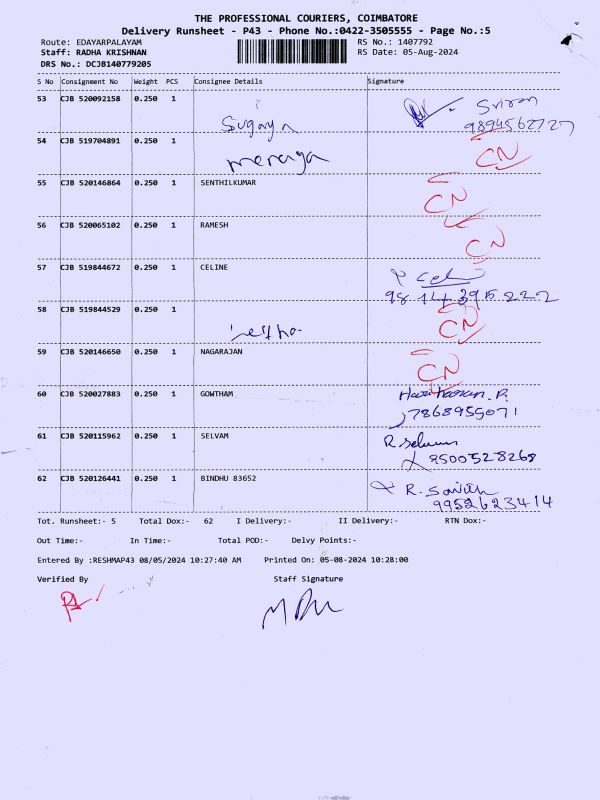 THE PROFESSIONAL COURIERS, COIMBATORE
Delivery Runsheet - P43 - Phone No.:0422-3505555 - Page No.:5
Route: EDAYARPALAYAM RS No.: 1407792
Staff: RADHA KRISHNAN RS Date: 05-Aug-2024
DRS No.: DCJB140779205
S No Consignment No Weight PCS Consignee Details Signature
53 CJB 520092158 0.250 1 Sugaya Sriram
9894562727
54 CJB 519704891 0.250 1 menaga CN
55 CJB 520146864 0.250 1 SENTHILKUMAR CN
56 CJB 520065102 0.250 1 RAMESH CN
57 CJB 519844672 0.250 1 CELINE P
9814395222
58 CJB 519844529 0.250 1 CN
59 CJB 520146650 0.250 1 NAGARAJAN CN
60 CJB 520027883 0.250 1 GOWTHAM P.
7868955071
61 CJB 520115962 0.250 1 SELVAM R.
9500528268
62 CJB 520126441 0.250 1 BINDHU 83652 R.
9952623414
Tot. Runsheet:- 5 Total Dox:- 62 I Delivery:- II Delivery:- RTN Dox:-
Out Time:- In Time:- Total POD:- Delvy Points:-
Entered By :RESHMAP43 08/05/2024 10:27:40 AM Printed On: 05-08-2024 10:28:00
Verified By Staff Signature